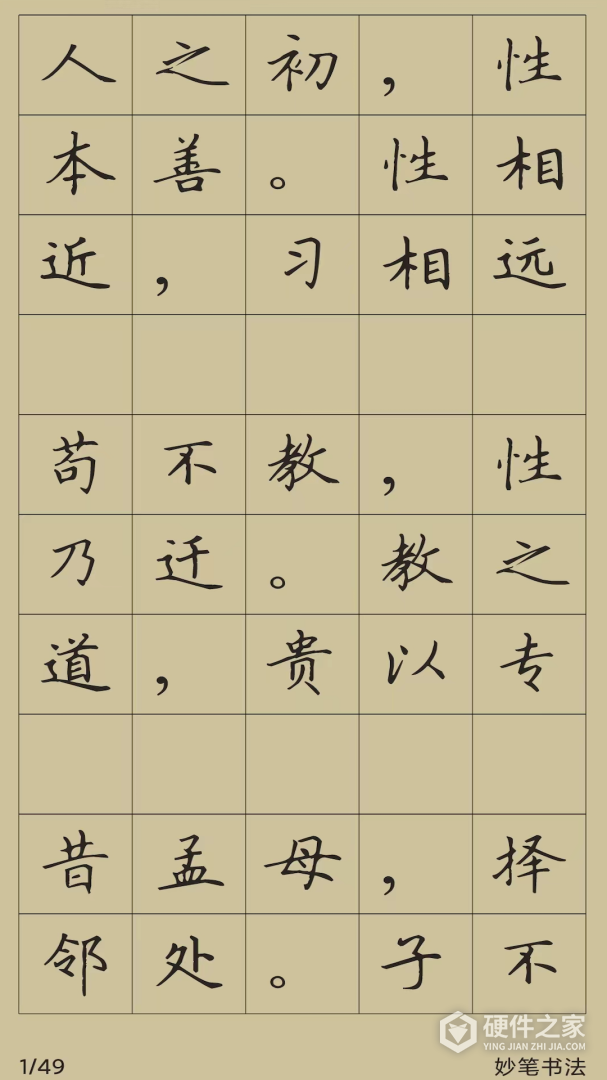 人之初，性
本善。性相
近，习相远
苟不教，性
乃迁。教之
道，贵以专
昔孟母，择
邻处。子不
硬件之家
YING JIAN ZHI JIA.COM
1/49
妙笔书法